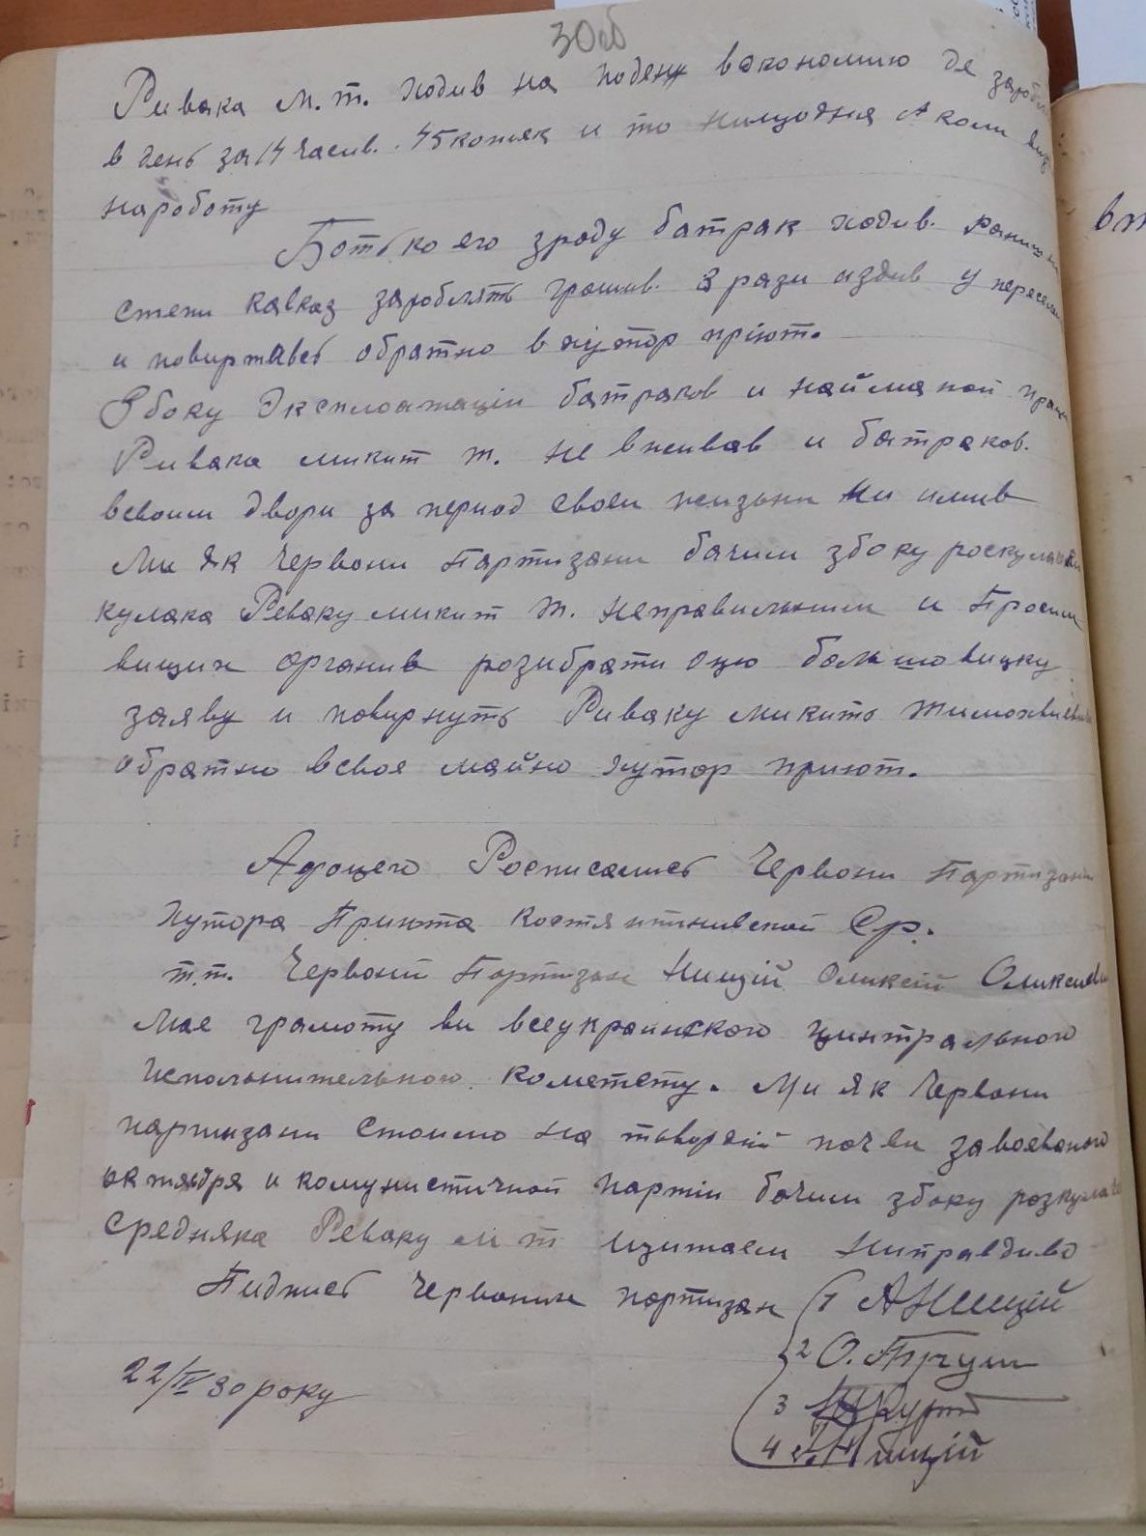 30об
Ривака М.т. ходив на поденн вэкономию де
в день за 14 часив. 45 копияк и то нищодня А коли
на роботу
Ботько его зроду батрак ходив.
степи кавказ зароблять грошив. 3 рази издив у
и повиртавсь обратно в хутор пріют.
Збоку Эксплоатаціи батраков и найманой
Ривака микит т. не вживав и батраков.
всвоим двори за период своеи жизьни ни имив
Ми як Червони Партизани бачим збоку
кулака Реваку микит т. неправильним и Просим
вищих органив розибрати оцю большовицку
заяву и повирнуть Риваку микито
обратно всвое майно хутор приют.
Адоцего Росписались Червони Партизани
хутора Приюта Костянтинивской Ср.
т.т. Червоний Партизан Нищій Оликсій
мае грамоту ви всеукраинского центрального
Исполнительного кометету. Ми як Червони
партизани стоимо на твердій почви завоеваного
октября и комунистичной партіи бачим збоку
средняка Реваку м т щитаем ниправдиво
Пидпись Червоних партизан 1 АНищій
2 О.
3
4 Нищій
22/IV 30 року